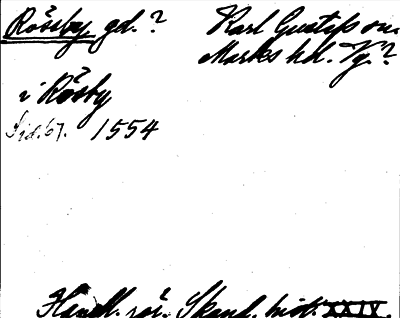 Rösby, gd.? Karl Gustafs sn.
Marks hd. Vg.?
i Rösby
Sid. 67. 1554
Handl. rör. Skand. hist. XXIV.